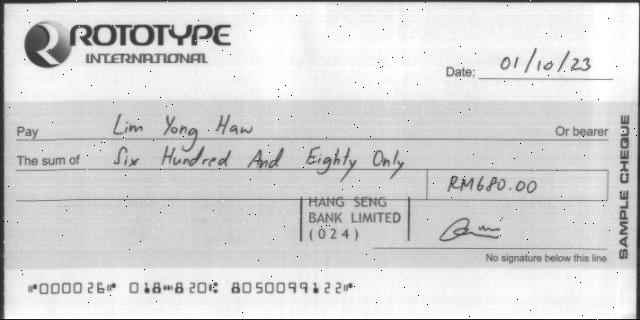 ROTOTYPE
INTERNATIONAL
Date: 01/10/23
Pay Lim Yong Haw Or bearer
The sum of Six Hundred And Eighty Only
RM680.00
HANG SENG
BANK LIMITED
(024)
No signature below this line
SAMPLE CHEQUE
⑈000026⑈ 018⑉820⑆ 8050099122⑈